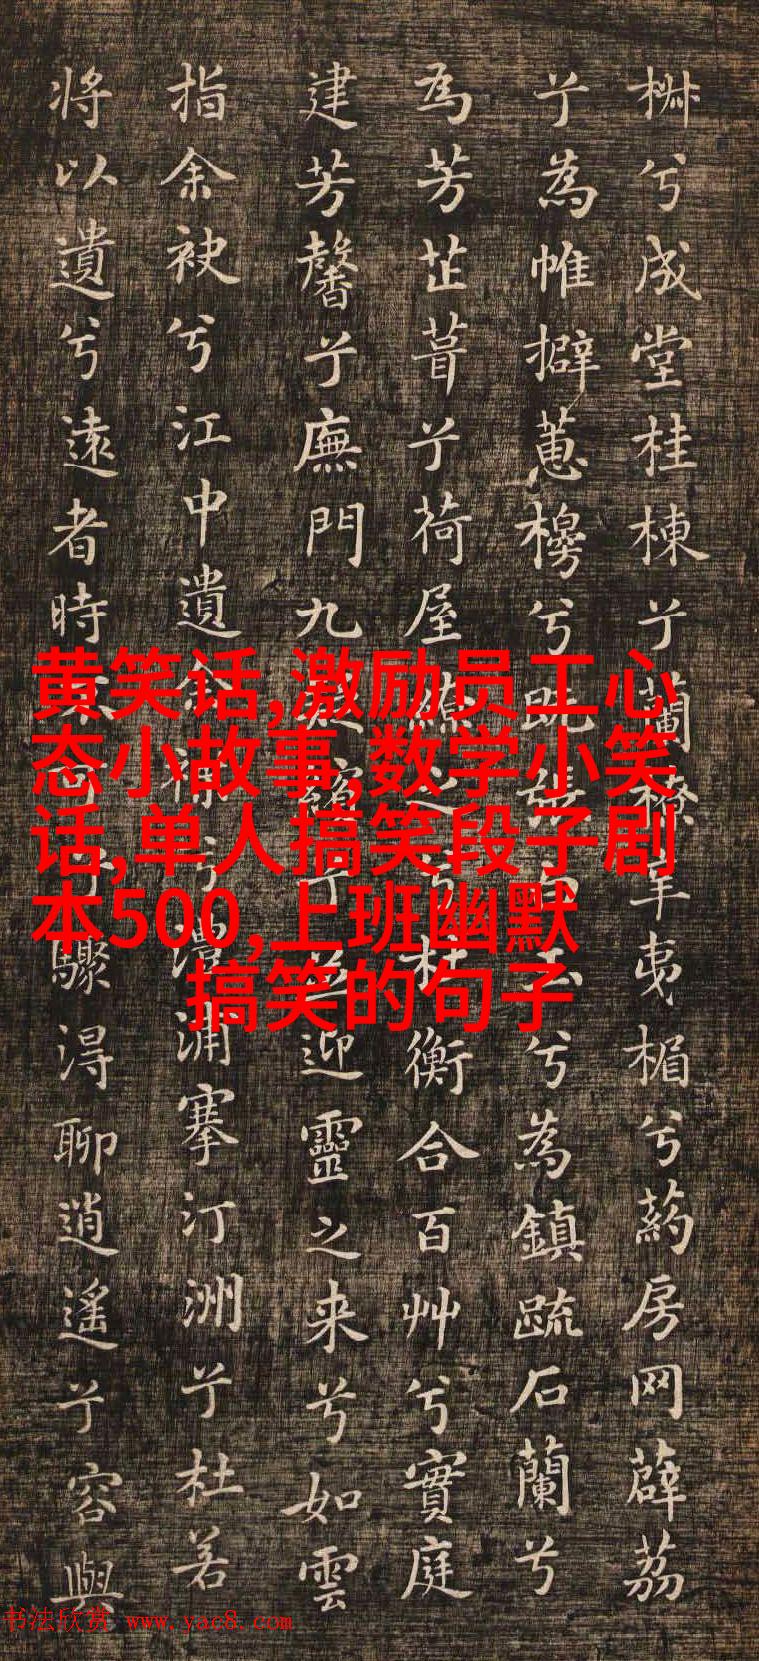 椒兮成堂桂棟兮蘭橑辛夷楣兮葯房网薜荔
兮為帷擗蕙櫋兮既張白玉兮為鎮疏石蘭兮
為芳芷葺兮荷屋繚之兮杜衡合百艸兮實庭
建芳馨兮廡門九疑繽兮並迎靈之来兮如雲
指余袂兮江中遺余褋兮澧浦搴汀洲兮杜若
将以遺兮遠者時不可兮驟得聊逍遙兮容與
黄笑话,激励员工心
态小故事,数学小笑
话,单人搞笑段子剧
本500,上班幽默
搞笑的句子
书法欣赏 www.yac8.com